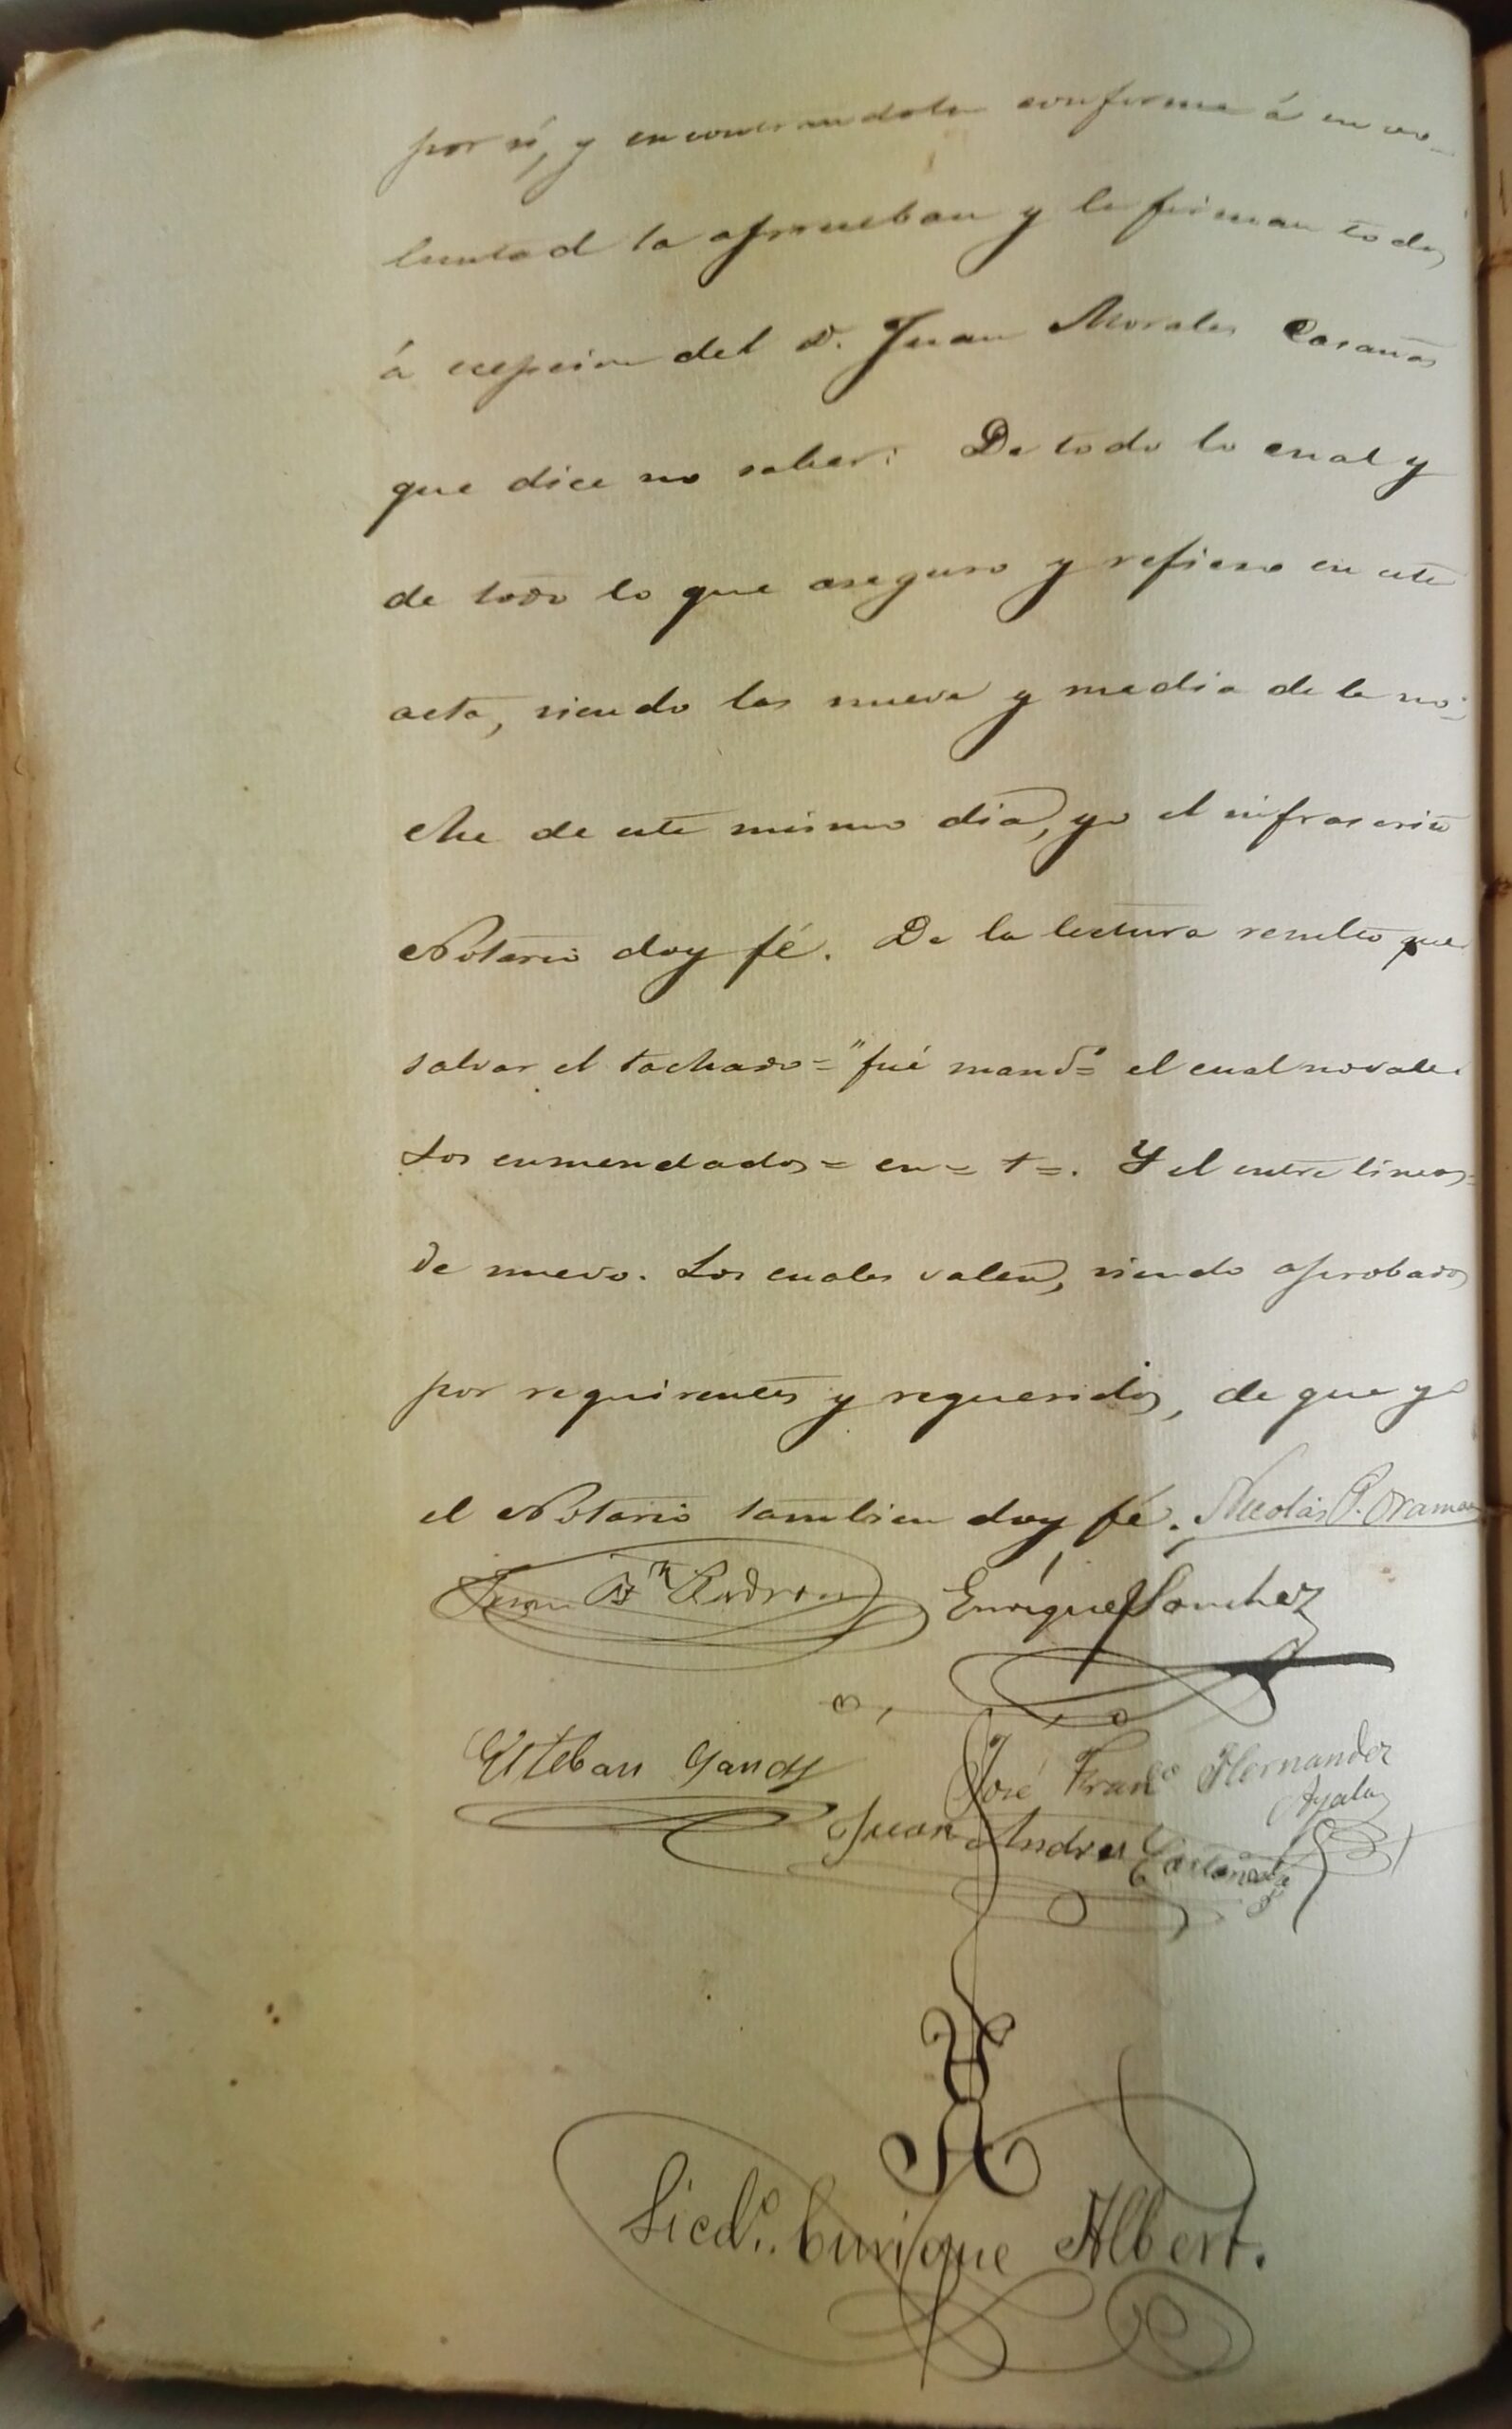 por sí, y encontrandola conforme á su vo-
luntad la aprueban y la firman todos
á escepcion del D. Juan Morales Casañas
que dice no saber. De todo lo cual y
de todo lo que aseguro y refiero en este
acta, siendo las nueve y media de la no-
che de este mismo dia, yo el infrascrito
Notario doy fé. De la lectura resulta que
salvar el tachado = "fué mand.º = el cual no vale.
Los enmendados = en = t =. Y el entre líneas =
de nuevo. Los cuales valen, siendo aprobados
por requirentes y requeridos, de que yo
el Notario tambien doy fé. Nicolás P. Oramas
Juan B.ta Enrique Sanchez
Esteban Gandy José Franco Hernandez
Ayala
Juan Andres
Licdo. Enrique Albert.